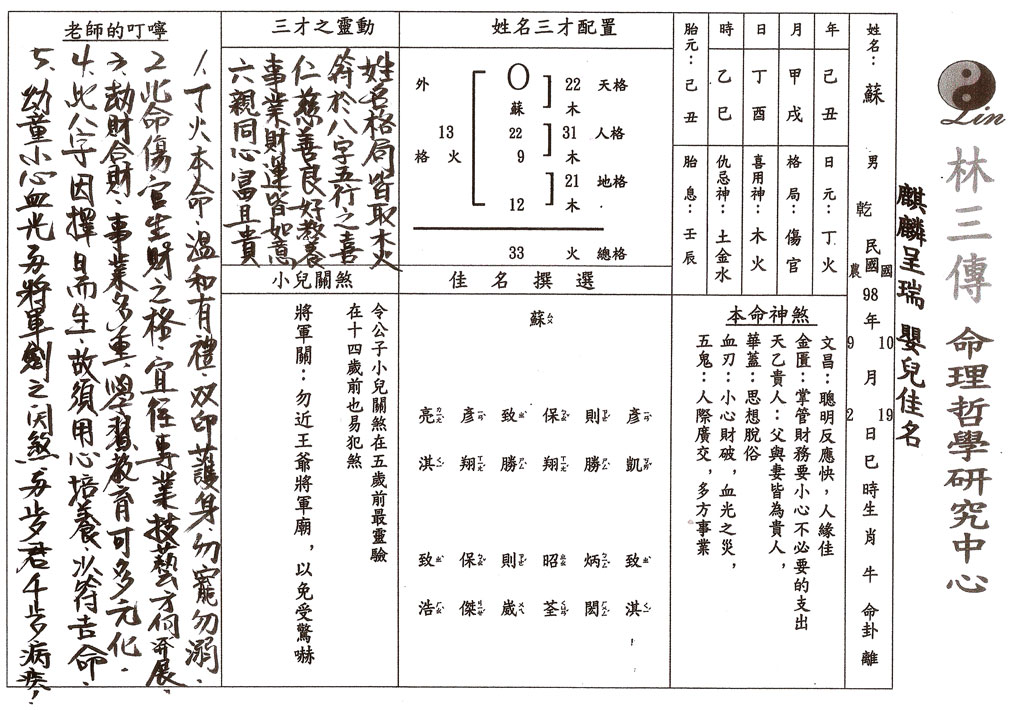 Lin
林三傳 命理哲學研究中心
麒麟呈瑞 嬰兒佳名
姓名：蘇 男 乾 民國98年 國10月19日 農9月2日 巳時生肖牛 命卦離
年 己丑 日元：丁火
月 甲戌 格局：傷官
日 丁酉 喜用神：木火
時 乙巳 仇忌神：土金水
胎元：己丑 胎息：壬辰
本命神煞
文昌：聰明反應快，人緣佳
金匱：掌管財務要小心不必要的支出
天乙貴人：父與妻皆為貴人，
華蓋：思想脫俗
血刃：小心財破，血光之災，
五鬼：人際廣交，多方事業
姓名三才配置
天格 22 木
人格 31 木
地格 21 木
總格 33 火
外格 13 火
蘇 22
9
12
佳名撰選
蘇ㄙㄨ
彥凱
則勝
保翔
致勝
彥翔
亮淇
致淇
炳閎
昭荃
則崴
保傑
致浩
三才之靈動
姓名格局皆取木火
符於八字五行之喜
仁慈善良好教養
事業財運皆如意
六親同心富且貴
小兒關煞
令公子小兒關煞在五歲前最靈驗
在十四歲前也易犯煞
將軍關：勿近王爺將軍廟，以免受驚嚇
老師的叮嚀
1、丁火本命，溫和有禮，双印護身，勿寵勿溺。
2、此命傷官生財之格，宜往專業技藝方向發展。
3、劫財合財，事業多重，學習教育可多元化。
4、此八字因擇日而生，故須用心培養，以符吉命。
5、幼童小心血光與將軍劍之因煞，與步君千步病疾！